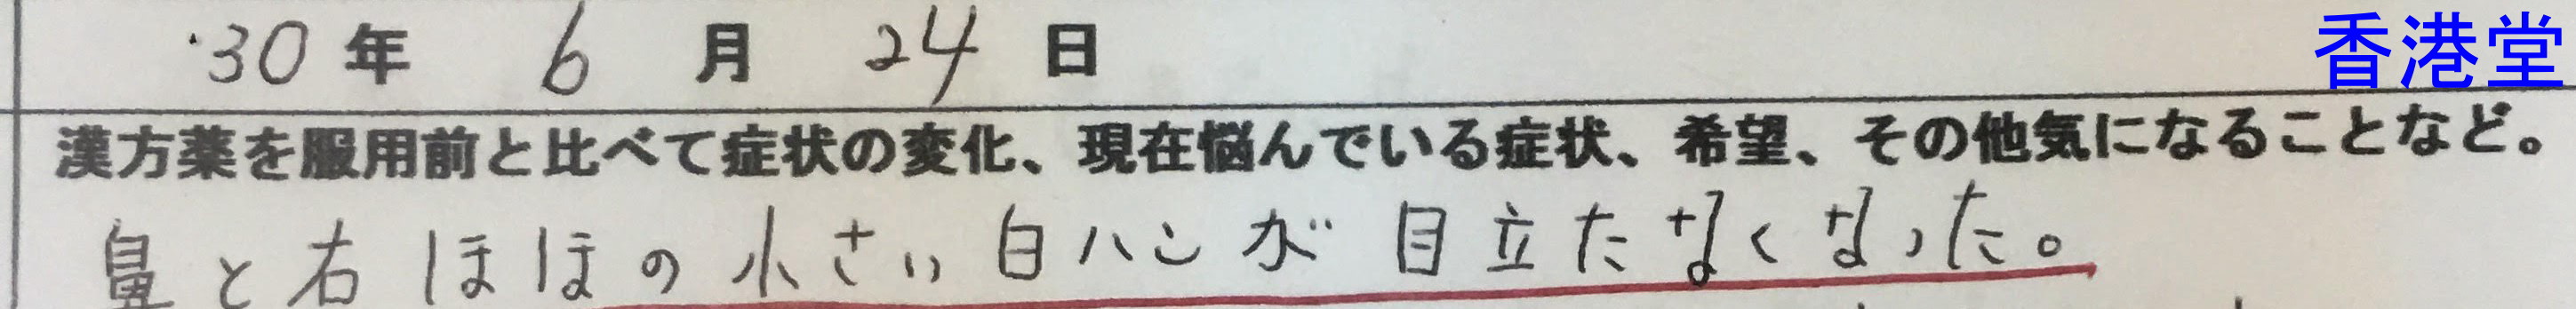 30年 6月 24日
香港堂
漢方薬を服用前と比べて症状の変化、現在悩んでいる症状、希望、その他気になることなど。
鼻と右ほほの小さい白ハンが目立たなくなった。